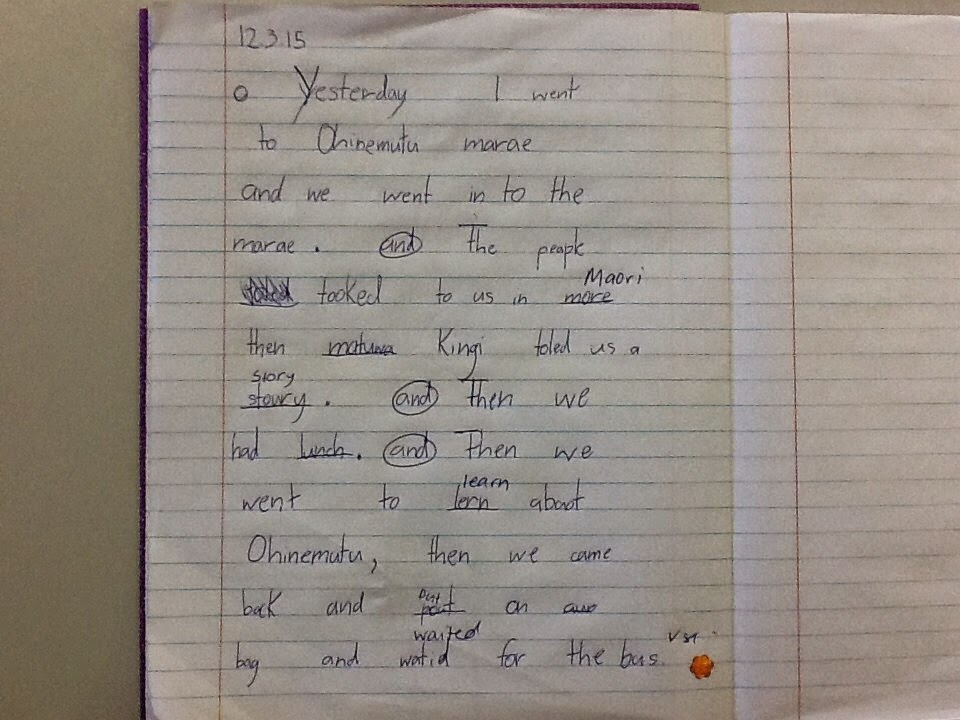 12.3.15
Yesterday I went
to Ohinemutu marae
and we went in to the
marae. and The people
tooked to us in more Maori
then matuwa Kingi toled us a
story
stowry. and Then we
had lunch. and Then we
learn
went to lern about
Ohinemutu, then we came
put
back and pout on
waited
bag and watid for the bus.